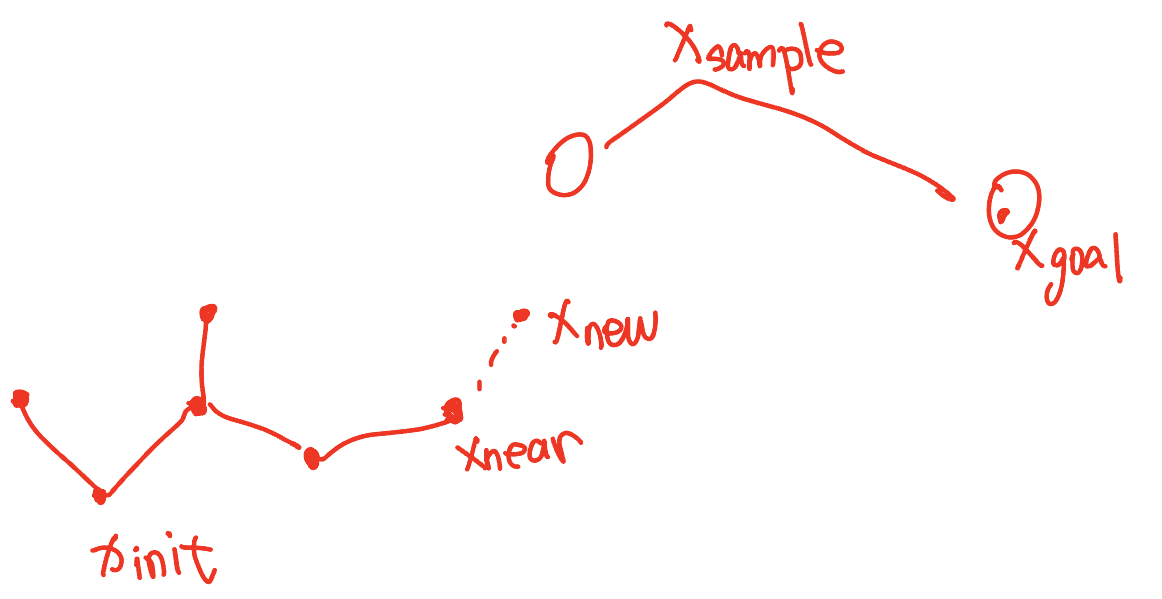 xsample
xgoal
xnew
xnear
xinit